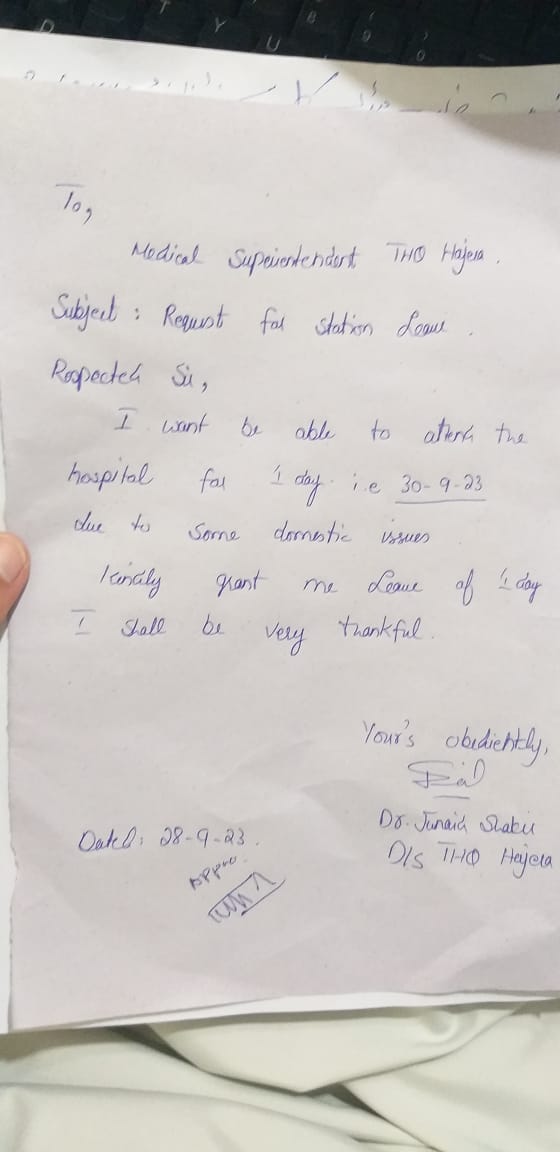 To,
Medical Superientendent THQ Hajera.
Subject : Request for station Leave.
Respected Sir,
I want be able to attend the
hospital for 1 day. i.e 30-9-23
due to some domestic issues
kindly grant me Leave of 1 day
I shall be very thankful.
Your's obediehtly,
Dr. Junaid Shakir
D/s THQ Hajera
Dated: 28-9-23.